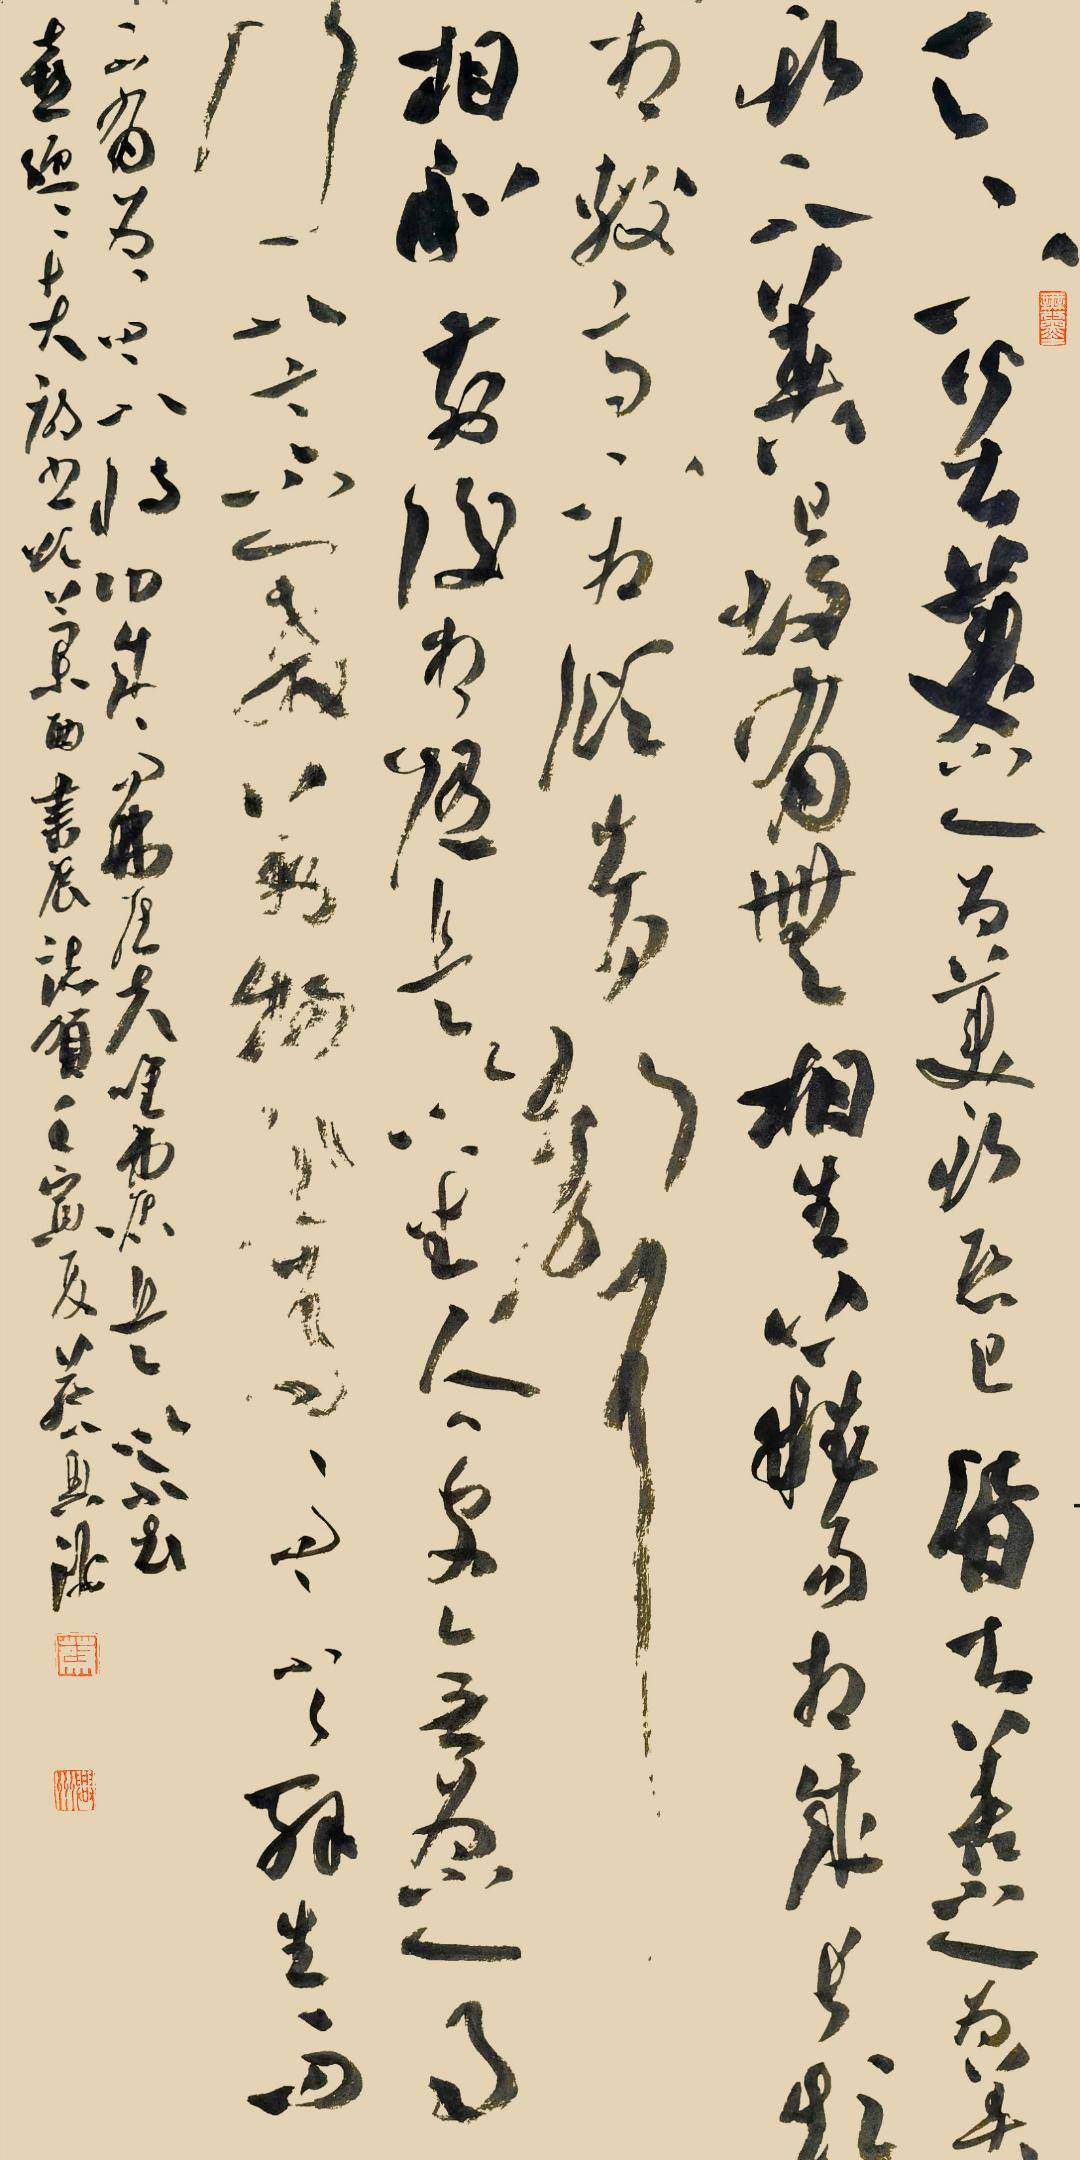 天下皆知美之為美斯惡已皆知善之為善
斯不善已故有無相生難易相成長短
相較高下相傾音聲
相和前後相隨是以聖人處無為之事
行不言之教萬物作焉而不辭生而
不有為而不恃功成而弗居夫唯弗居是以不去
喜迎二十大 書展誌賀壬寅夏蔡興洲